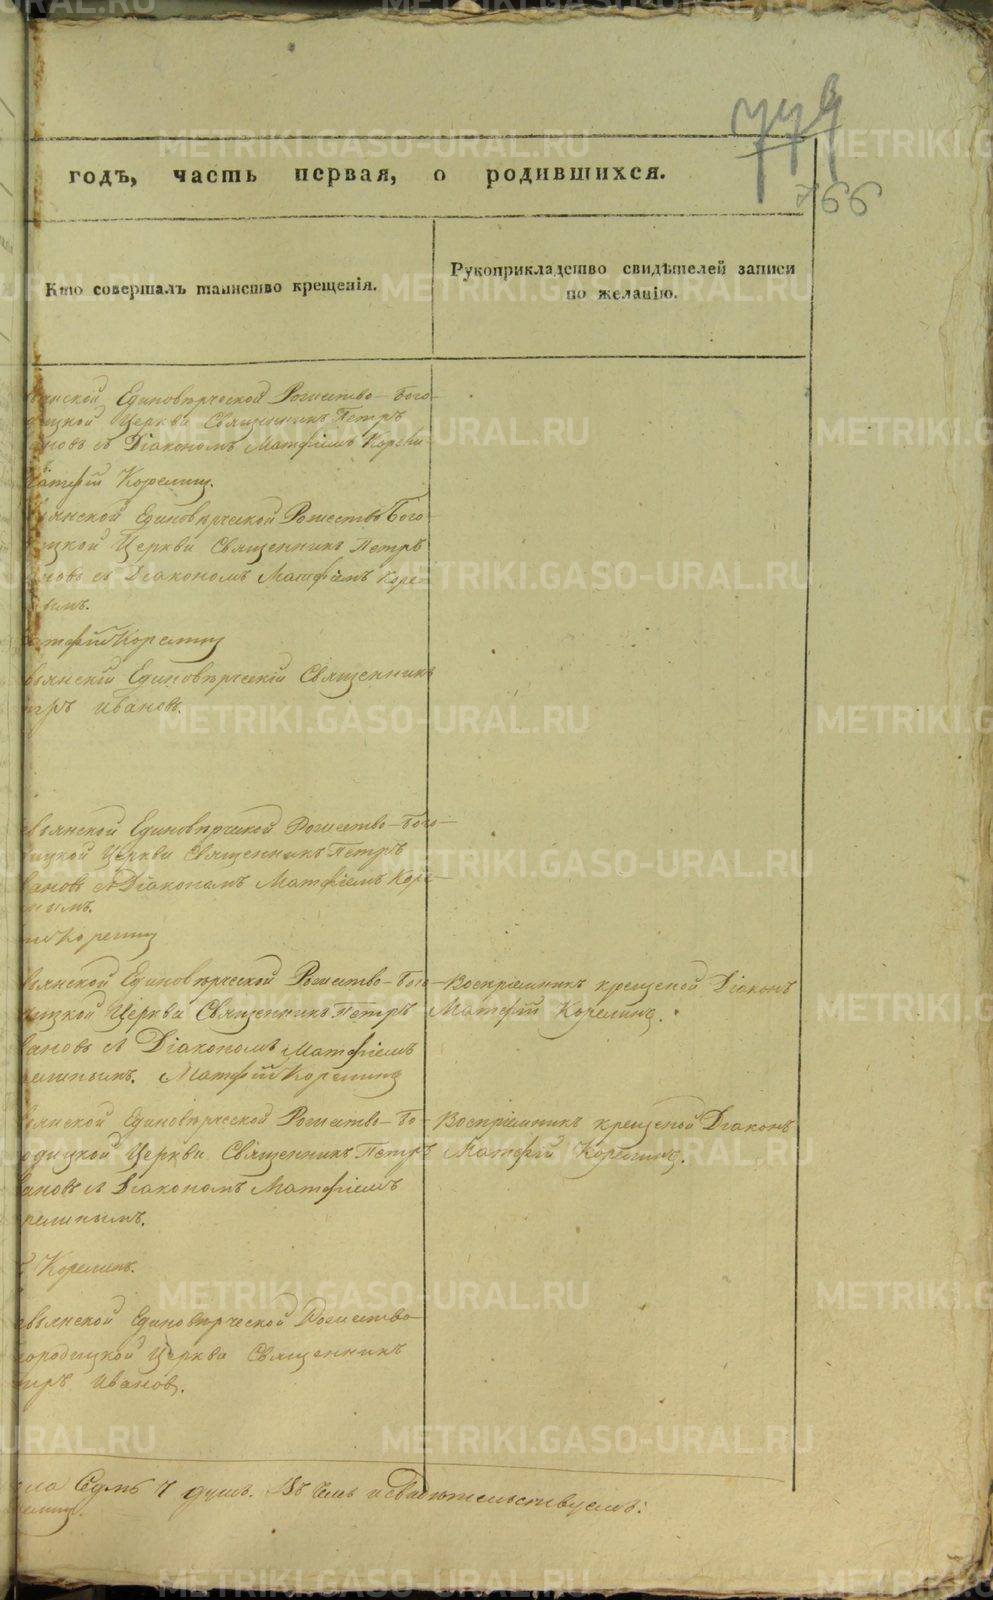 779
766
годъ, часть первая, о родившихся.
Кто совершалъ таинство крещенія.
Рукоприкладство свидѣтелей записи
по желанію.
янской Единовѣрческой Рожество-Бого-
дицкой Церкви Священникъ Петръ
новъ съ Діакономъ Матфіемъ Корели-
Матфій Корелинъ.
вьянской Единовѣрческой Рожество Бого-
ицкой Церкви Священникъ Петръ
новъ съ Діакономъ Матфіемъ Коре-
нымъ.
атфій Корелинъ
вьянскій Единовѣрческій Священникъ
тръ Ивановъ.
евьянской Единовѣрческой Рожество-Бого-
дицкой Церкви Священникъ Петръ
вановъ съ Діакономъ Матфіемъ Коре-
нымъ.
Корелинъ
вьянской Единовѣрческой Рожество-Бого-
ицкой Церкви Священникъ Петръ
вановъ съ Діакономъ Матфіемъ
релинымъ. Матфій Корелинъ
Воспріемникъ крещеной Діаконъ
Матфій Корелинъ.
вьянской Единовѣрческой Рожество-Бо-
одицкой Церкви Священникъ Петръ
вановъ съ Діакономъ Матфіемъ
релинымъ.
Корелинъ.
Воспріемникъ крещеной Діаконъ
Матфій Корелинъ.
евьянской Единовѣрческой Рожество
городицкой Церкви Священникъ
тръ Ивановъ.
Седмь 7 душъ. Въ чемъ и свидѣтельствуемъ:
METRIKI.GASO-URAL.RU